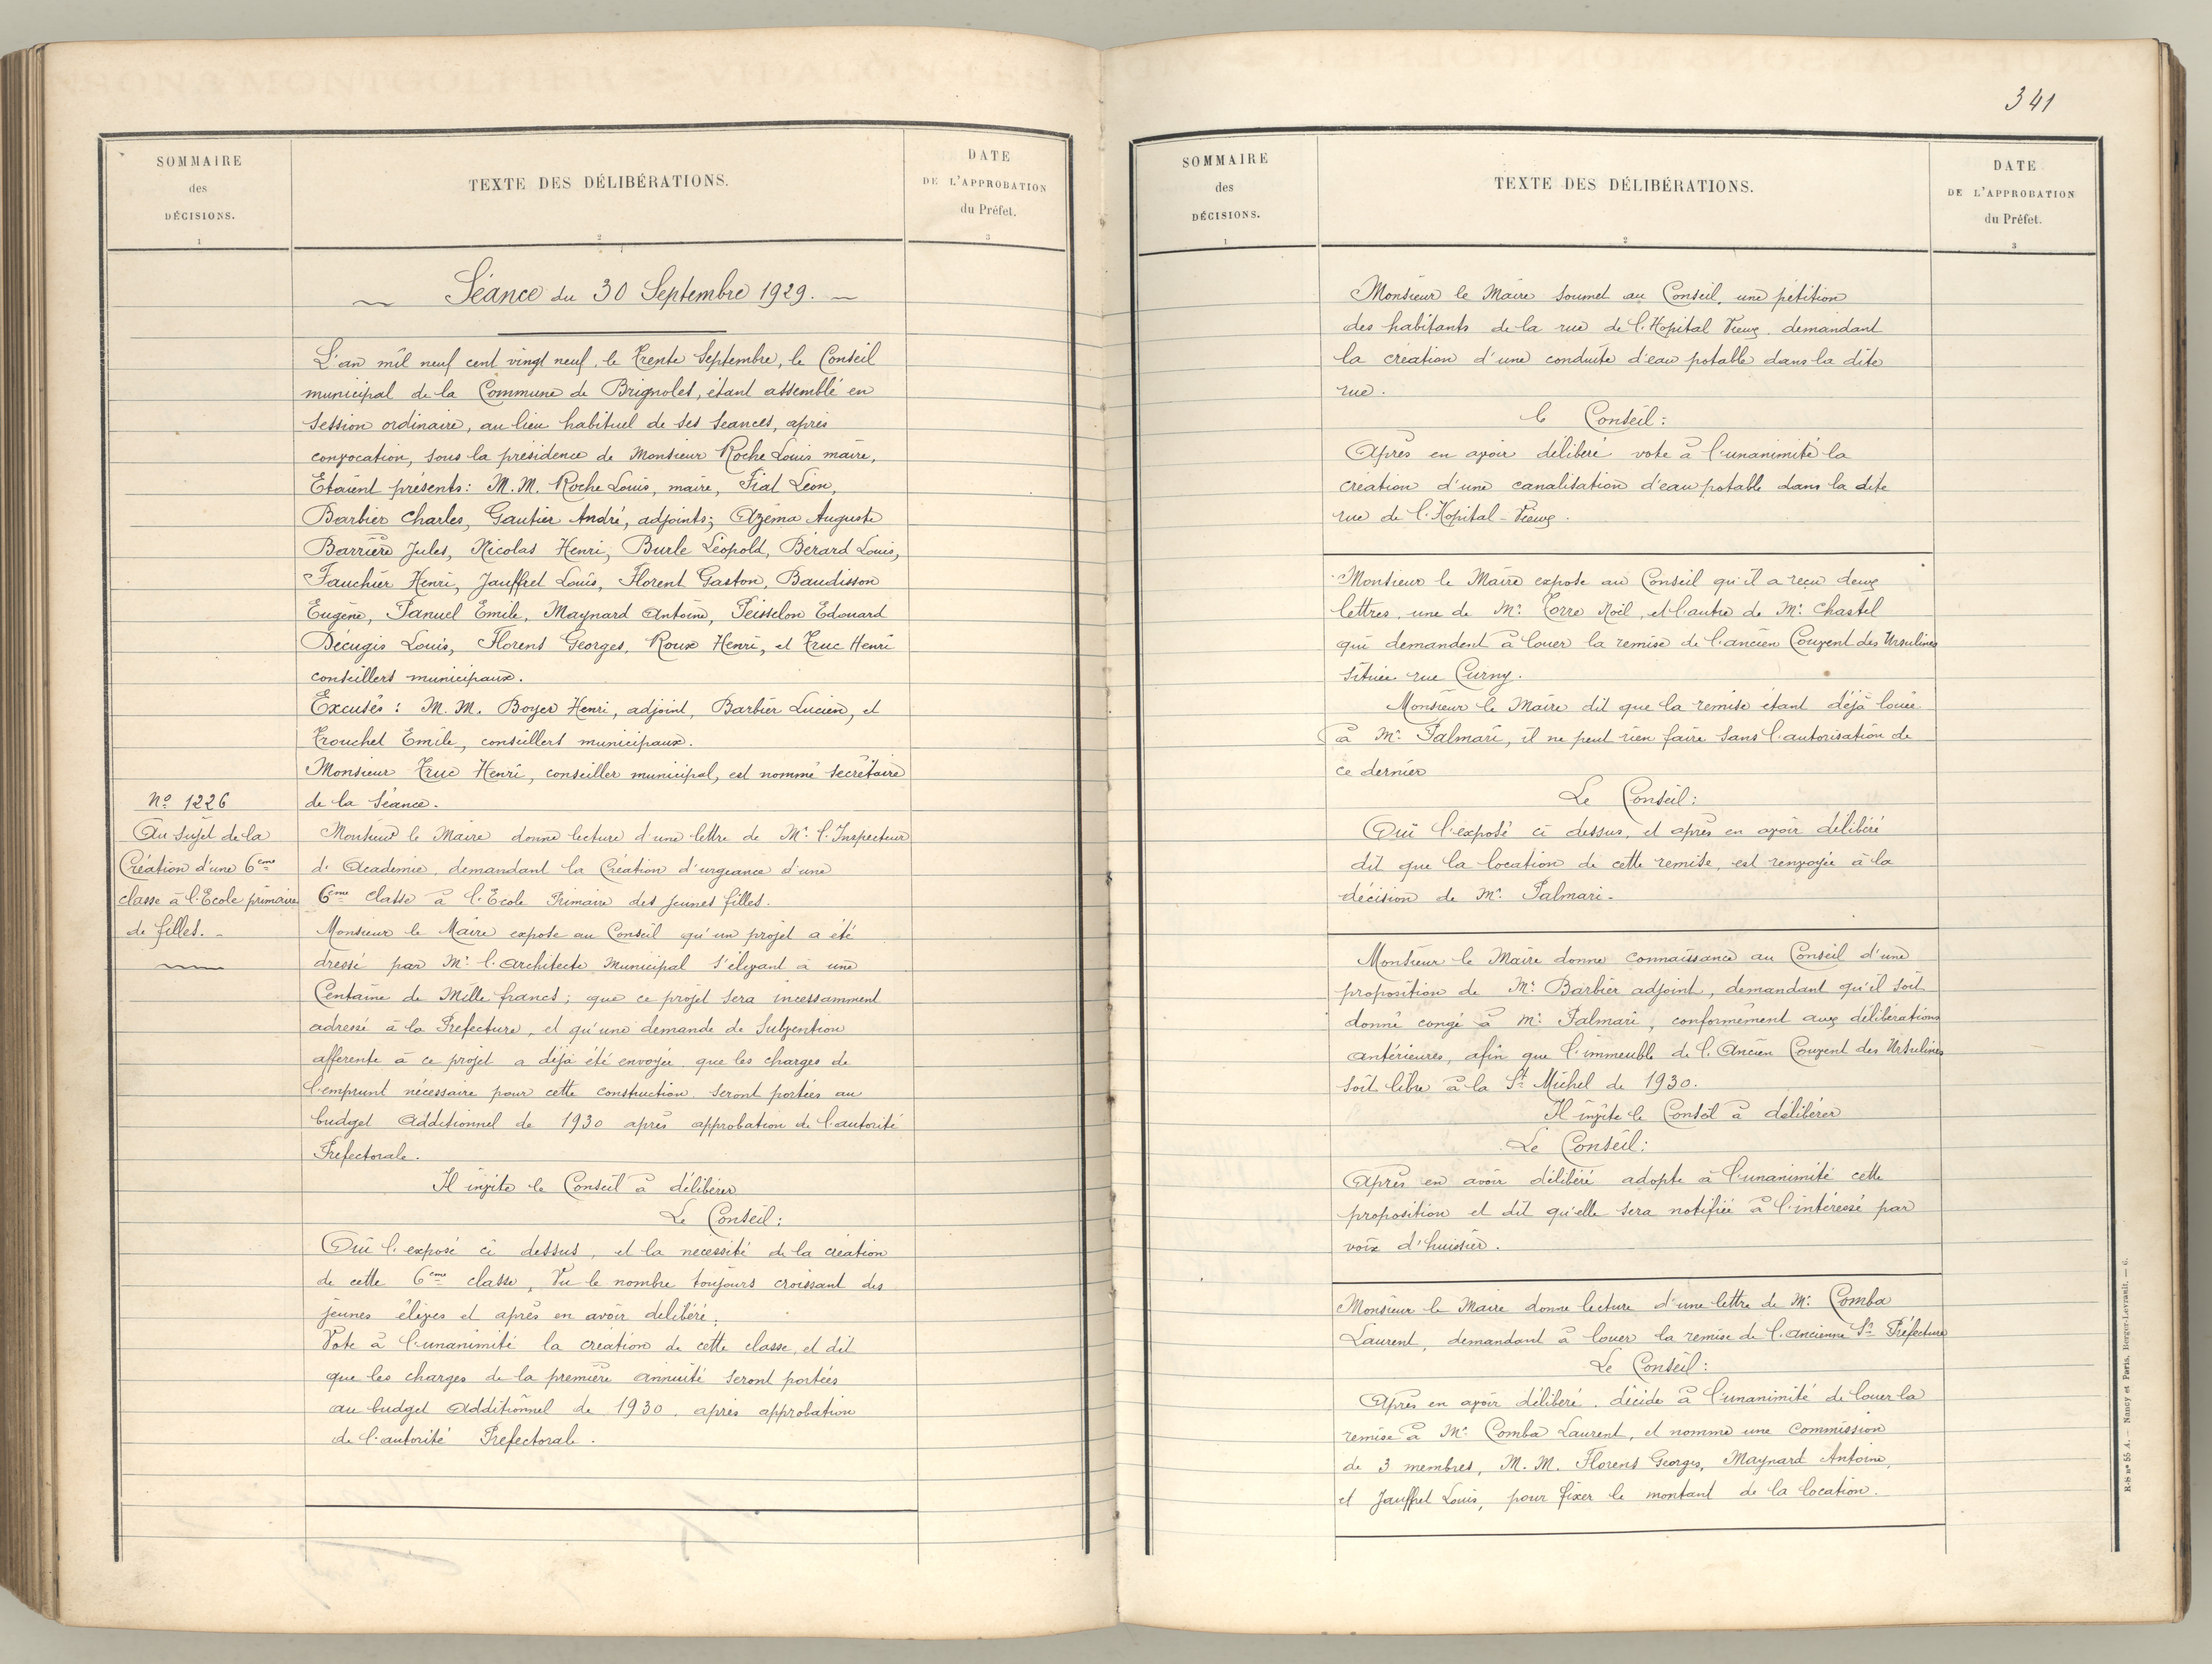 SOMMAIRE
des
DÉCISIONS.
1
TEXTE DES DÉLIBÉRATIONS.
2
DATE
DE L'APPROBATION
du Préfet.
3
Séance du 30 Septembre 1929.
L'an mil neuf cent vingt neuf, le trente Septembre, le Conseil
municipal de la Commune de Brignoles, étant assemblé en
session ordinaire, au lieu habituel de ses séances, après
convocation, sous la présidence de Monsieur Roche Louis maire,
Etaient présents: M.M. Roche Louis, maire, Fiat Léon,
Barbier Charles, Gautier André, adjoints; Azéma Auguste
Barrière Jules, Nicolas Henri, Burle Léopold, Bérard Louis,
Fauchier Henri, Jauffret Louis, Florent Gaston, Baudisson
Eugène, Panuel Emile, Maynard Antoine, Peisselon Edouard
Décugis Louis, Florens Georges, Roux Henri, et Truc Henri
conseillers municipaux.
Excusés: M.M. Boyer Henri, adjoint, Barbier Lucien, et
Trouchet Emile, conseillers municipaux.
Monsieur Truc Henri, conseiller municipal, est nommé secrétaire
de la Séance.
No 1226
Au sujet de la
Création d'une 6ème
classe à l'Ecole primaire
de filles. -
Monsieur le Maire donne lecture d'une lettre de Mr. l'Inspecteur
d'Academie, demandant la Création d'urgeance d'une
6ème Classe à l'Ecole Primaire des jeunes filles.
Monsieur le Maire expose au Conseil qu'un projet a été
dressé par Mr. l'Architecte Municipal s'élevant à une
Centaine de Mille francs; que ce projet sera incessamment
adressé à la Préfecture, et qu'une demande de Subvention
afferente à ce projet a déjà été envoyée, que les charges de
l'emprunt nécessaire pour cette construction seront portées au
budget Additionnel de 1930 après approbation de l'autorité
Prefectorale.
Il invite le Conseil à délibérer
Le Conseil:
Ouï l'exposé ci dessus, et la necessité de la création
de cette 6ème classe, Vu le nombre toujours croissant des
jeunes élèves et après en avoir delibéré;
Vote à l'unanimité la création de cette classe, et dit
que les charges de la première annuité seront portées
au budget Additionnel de 1930, après approbation
de l'autorité Prefectorale.
341
SOMMAIRE
des
DÉCISIONS.
1
TEXTE DES DÉLIBÉRATIONS.
2
DATE
DE L'APPROBATION
du Préfet.
3
Monsieur le Maire soumet au Conseil, une pétition
des habitants de la rue de l'Hopital Vieux, demandant
la création d'une conduite d'eau potable dans la dite
rue.
le Conseil:
Après en avoir délibéré vote à l'unanimité la
création d'une canalisation d'eau potable dans la dite
rue de l'Hopital-Vieux.
Monsieur le Maire expose au Conseil qu'il a reçu deux
lettres, une de Mr. Torre Noël, et l'autre de Mr. Chastel
qui demandent à louer la remise de l'ancien Couvent des Ursulines
située rue Curny.
Monsieur le Maire dit que la remise étant déjà louée
à Mr. Palmari, il ne peut rien faire sans l'autorisation de
ce dernier
Le Conseil:
Ouï l'exposé ci dessus, et après en avoir délibéré
dit que la location de cette remise, est renvoyée à la
décision de Mr. Palmari.
Monsieur le Maire donne connaissance au Conseil d'une
proposition de Mr. Barbier adjoint, demandant qu'il soit
donné congé à Mr. Palmari, conformément aux délibérations
antérieures, afin que l'immeuble de l'Ancien Couvent des Ursulines
soit libre à la St Michel de 1930.
Il invite le Conseil à délibérer
Le Conseil:
Après en avoir délibéré adopte à l'unanimité cette
proposition et dit qu'elle sera notifiée à l'intéressé par
voix d'huissier.
Monsieur le Maire donne lecture d'une lettre de Mr. Comba
Laurent, demandant à louer la remise de l'ancienne Ss Préfecture
Le Conseil:
Après en avoir délibéré, décide à l'unanimité de louer la
remise à Mr. Comba Laurent, et nomme une Commission
de 3 membres, M.M. Florens Georges, Maynard Antoine,
et Jauffret Louis, pour fixer le montant de la location.
R-S no 55 A. — Nancy et Paris, Berger-Levrault. — 6.